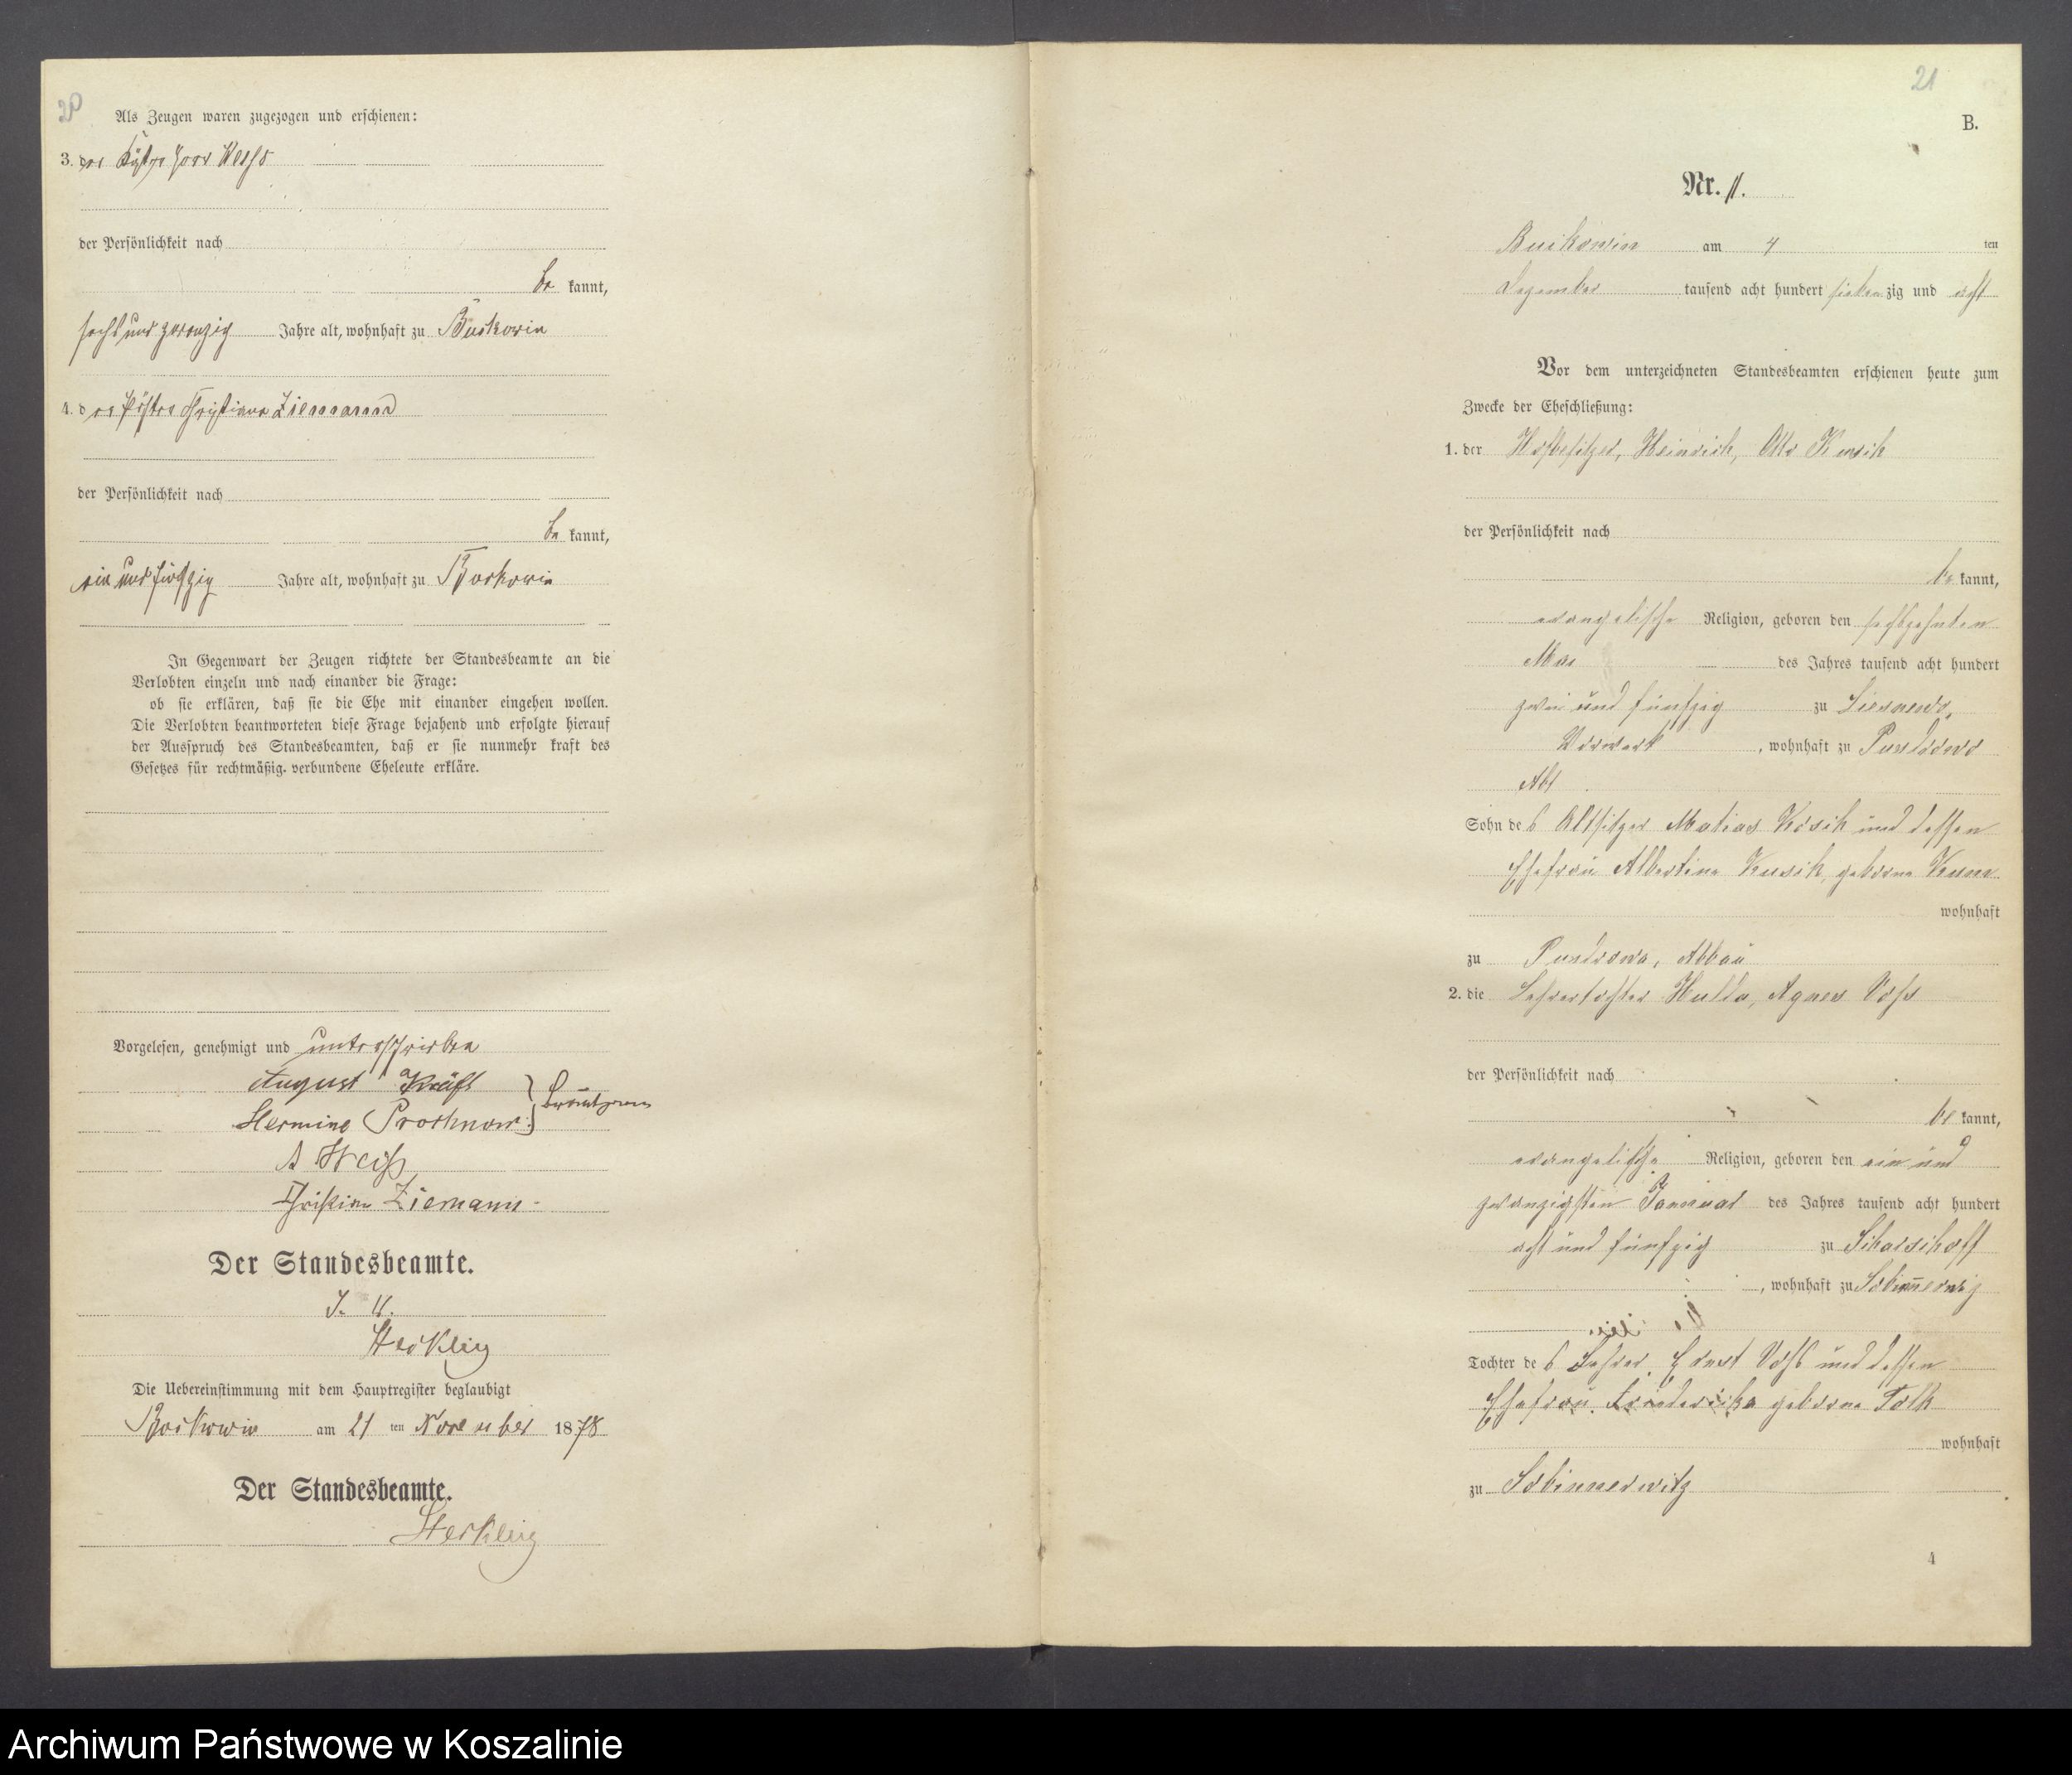 20
Als Zeugen waren zugezogen und erschienen:
3. der Küster Herr Weiß
der Persönlichkeit nach
be kannt,
sechs und zwanzig Jahre alt, wohnhaft zu Buckowin
4. der Christian Ziemann
der Persönlichkeit nach
be kannt,
ein und fünfzig Jahre alt, wohnhaft zu Buckowin
In Gegenwart der Zeugen richtete der Standesbeamte an die
Verlobten einzeln und nach einander die Frage:
ob sie erklären, daß sie die Ehe mit einander eingehen wollen.
Die Verlobten beantworteten diese Frage bejahend und erfolgte hierauf
der Ausspruch des Standesbeamten, daß er sie nunmehr kraft des
Gesetzes für rechtmäßig verbundene Eheleute erkläre.
Vorgelesen, genehmigt und unterschrieben
August Kräft
Hermine Prochnow
A Weiß
Christian Ziemann
Der Standesbeamte.
Die Uebereinstimmung mit dem Hauptregister beglaubigt
Buckowin am 21 ten November 1878
Der Standesbeamte.
21
B.
Nr. 11.
Buckowin am 4 ten
Dezember tausend acht hundert siebenzig und acht
Vor dem unterzeichneten Standesbeamten erschienen heute zum
Zwecke der Eheschließung:
1. der Hofbesitzer, Heinrich, Otto
der Persönlichkeit nach
be kannt,
evangelische Religion, geboren den sechszehnten
Mai des Jahres tausend acht hundert
zwei und fünfzig zu
Vorwerk, wohnhaft zu
Abb
Sohn des Altsitzer Matias und dessen
Ehefrau Albertine geborne
wohnhaft
zu Abbau
2. die Lehrertochter Hulda, Agnes Voß
der Persönlichkeit nach
be kannt,
evangelische Religion, geboren den ein und
zwanzigsten Januar des Jahres tausend acht hundert
acht und fünfzig zu Scharschoff
, wohnhaft zu
Tochter des Lehrer Ernst Voß und dessen
Ehefrau Friederike geborne Volk
wohnhaft
zu Schimmerwitz
4
Archiwum Państwowe w Koszalinie